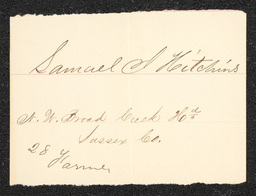 Samuel S Hitchins
N. W. Broad Creek Hd
Sussex Co.
28
Farmer